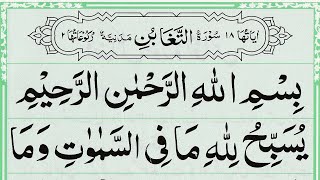 اٰيَاتُهَا ١٨ سُوْرَةُ التَّغَابُنِ مَدَنِيَّةٌ رُكُوْعَاتُهَا ٢
بِسْمِ اللهِ الرَّحْمٰنِ الرَّحِيْمِ
يُسَبِّحُ لِلّٰهِ مَا فِى السَّمٰوٰتِ وَمَا